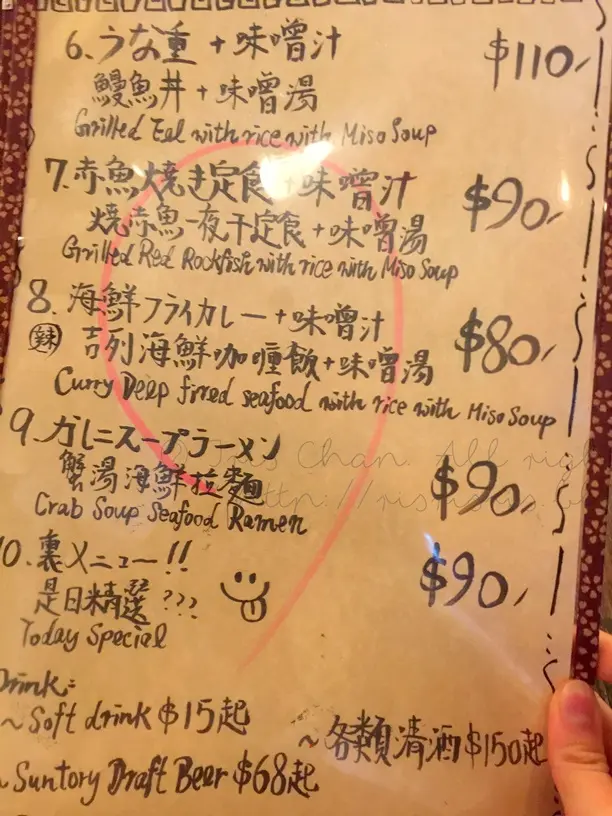 6. うな重 + 味噌汁 $110/
鰻魚丼 + 味噌湯
Grilled Eel with rice with Miso Soup
7. 赤魚焼き定食 + 味噌汁 $90/
燒赤魚一夜干定食 + 味噌湯
Grilled Red Rockfish with rice with Miso Soup
8. 海鮮フライカレー + 味噌汁 $80/
辣 吉列海鮮咖喱飯 + 味噌湯
Curry Deep fired seafood with rice with Miso Soup
9. かにスープラーメン $90/
蟹湯海鮮拉麵
Crab Soup Seafood Ramen
10. 裏メニュー!! $90/
是日精選???
Today Special
Drink:
~ Soft drink $15起
~ 各類清酒 $150起
~ Suntory Draft Beer $68起